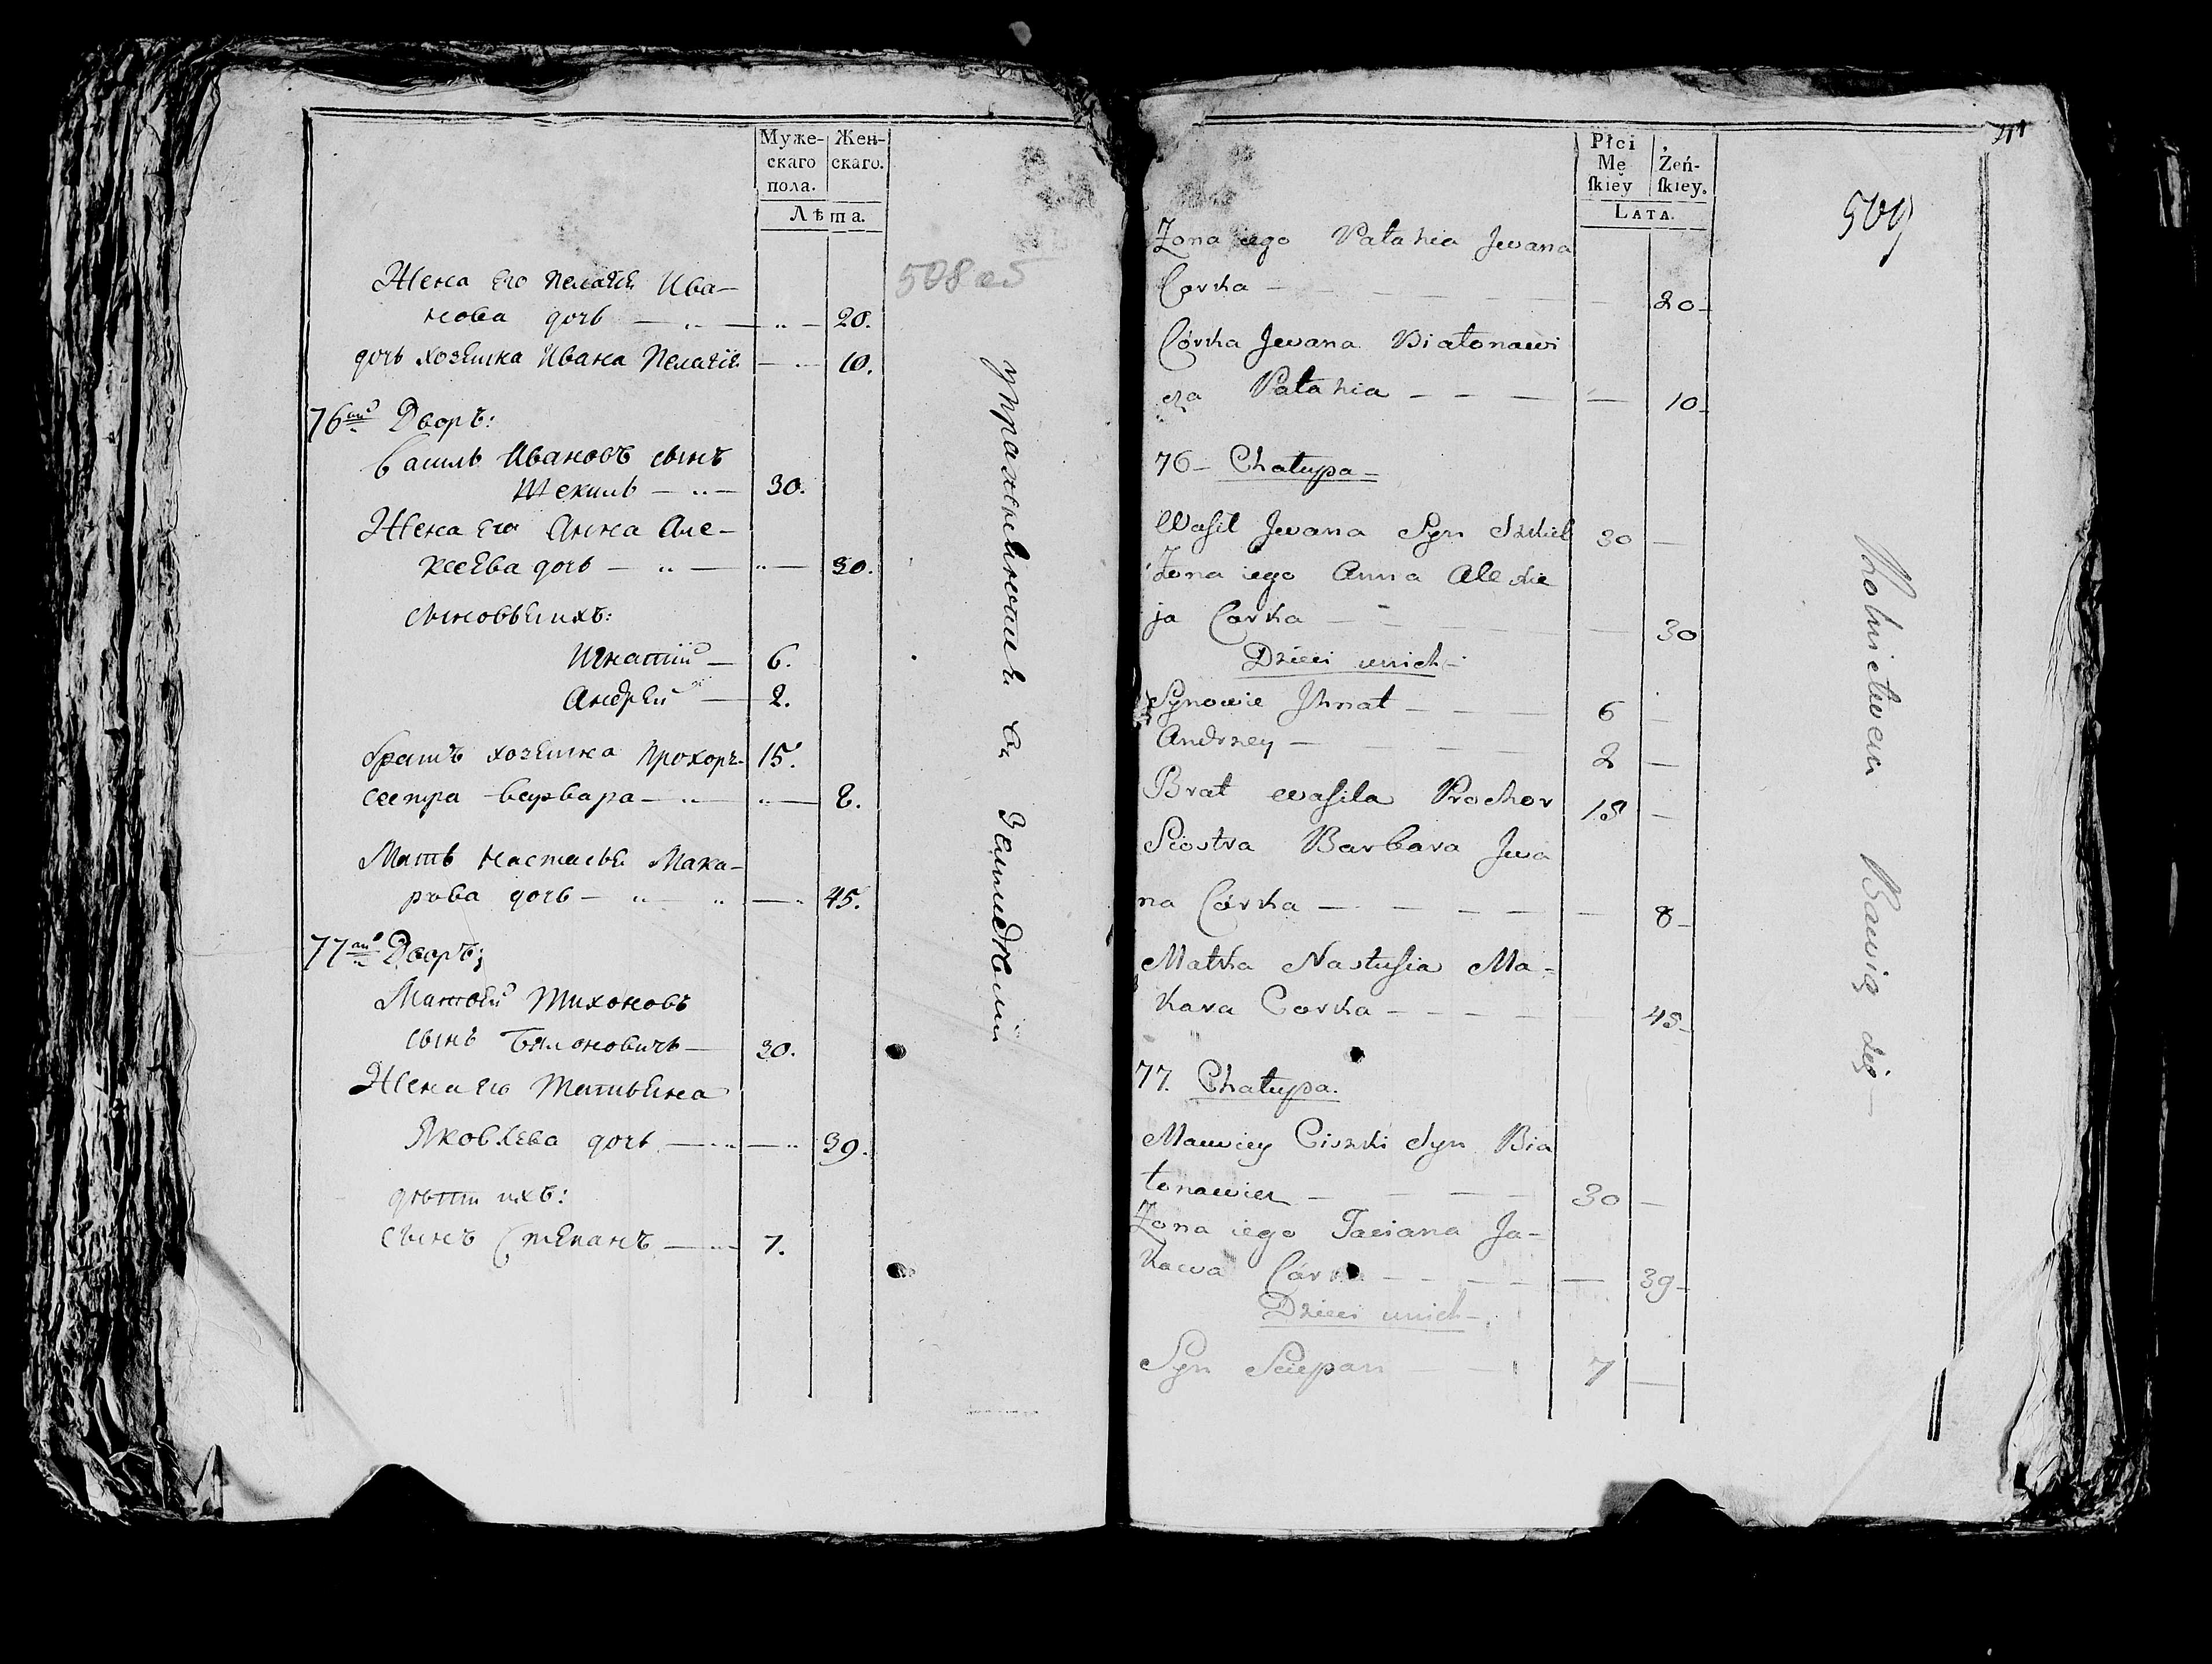 Муже-
скаго
пола.
Жен-
скаго.
Лѣта.
508 об
Жена Его Пелагѣя Ива-
нова дочь — „ — „ — 20.
дочь хозяина Ивана Пелагія — „ — 10.
76й Дворъ:
Василь Ивановъ сынъ
Шекиль — „ — 30.
Жена Его Анна Але-
ксѣева дочь — „ — „ — 30.
сыновья ихъ:
Игнатій — 6.
Андрей — 2.
братъ хозяина Прохоръ 15.
сестра Варвара — „ — „ — 8.
Мать Настасья Мака-
рова дочь — „ — „ — 45.
77й Дворъ:
Матвѣй Тихоновъ
сынъ Бялоновичъ — 30.
Жена Его Татьяна
Яковлева дочь — „ — „ 39.
дѣти ихъ:
сынъ Степанъ — „ — 7.
упражняются въ Земледѣліи
Płci
Mę
ſkiey
Żeń-
ſkiey.
LATA.
509
Żona iego Pałahia Jwana
Corka — — — — — — 20 —
Córka Jwana Białonawi
cza Pałahia — — — — 10 —
76 — Chałupa —
Waſil Jwana Syn Szkiel 30 —
Żona iego Anna Alexie
ja Corka — — — — — 30
Dzieci unich —
Synowie Jhnat — — — 6 —
Andrzey — — — — 2 —
Brat waſila Prochor 15 —
Siostra Barbara Jwa
na Córka — — — — — 8 —
Matka Nastuſia Ma-
kara Corka — — — — — 45 —
77. Chałupa.
Mawiey Ciszki Syn Bia
łonawicz — — — — 30 —
Żona iego Taciana Ja-
kowa Córka — — — — — 39 —
Dzieci unich —
Syn Sciepan — — 7 —
Rolnictwem Bawią się —